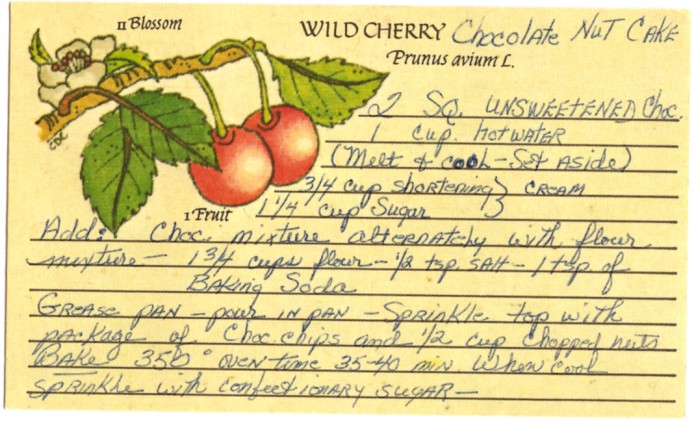 II Blossom
WILD CHERRY Chocolate NUT CAKE
Prunus avium L.
2 SQ. UNSWEETENED Choc.
1 cup. HOTWATER
(Melt & cool - Set Aside)
3/4 cup shortening } CREAM
1 1/4 cup Sugar
I Fruit
CDC
Add: Choc. mixture alternately with flour
mixture - 1 3/4 cups flour - 1/2 tsp. SAlt - 1 tsp of
BAKING Soda
GREASE PAN - pour in PAN - SPRINKLE top with
package of Choc. chips and 1/2 cup Chopped nuts
BAKE 350° oven time 35-40 min. When cool
SPRINKLE with confectionARY SUGAR -